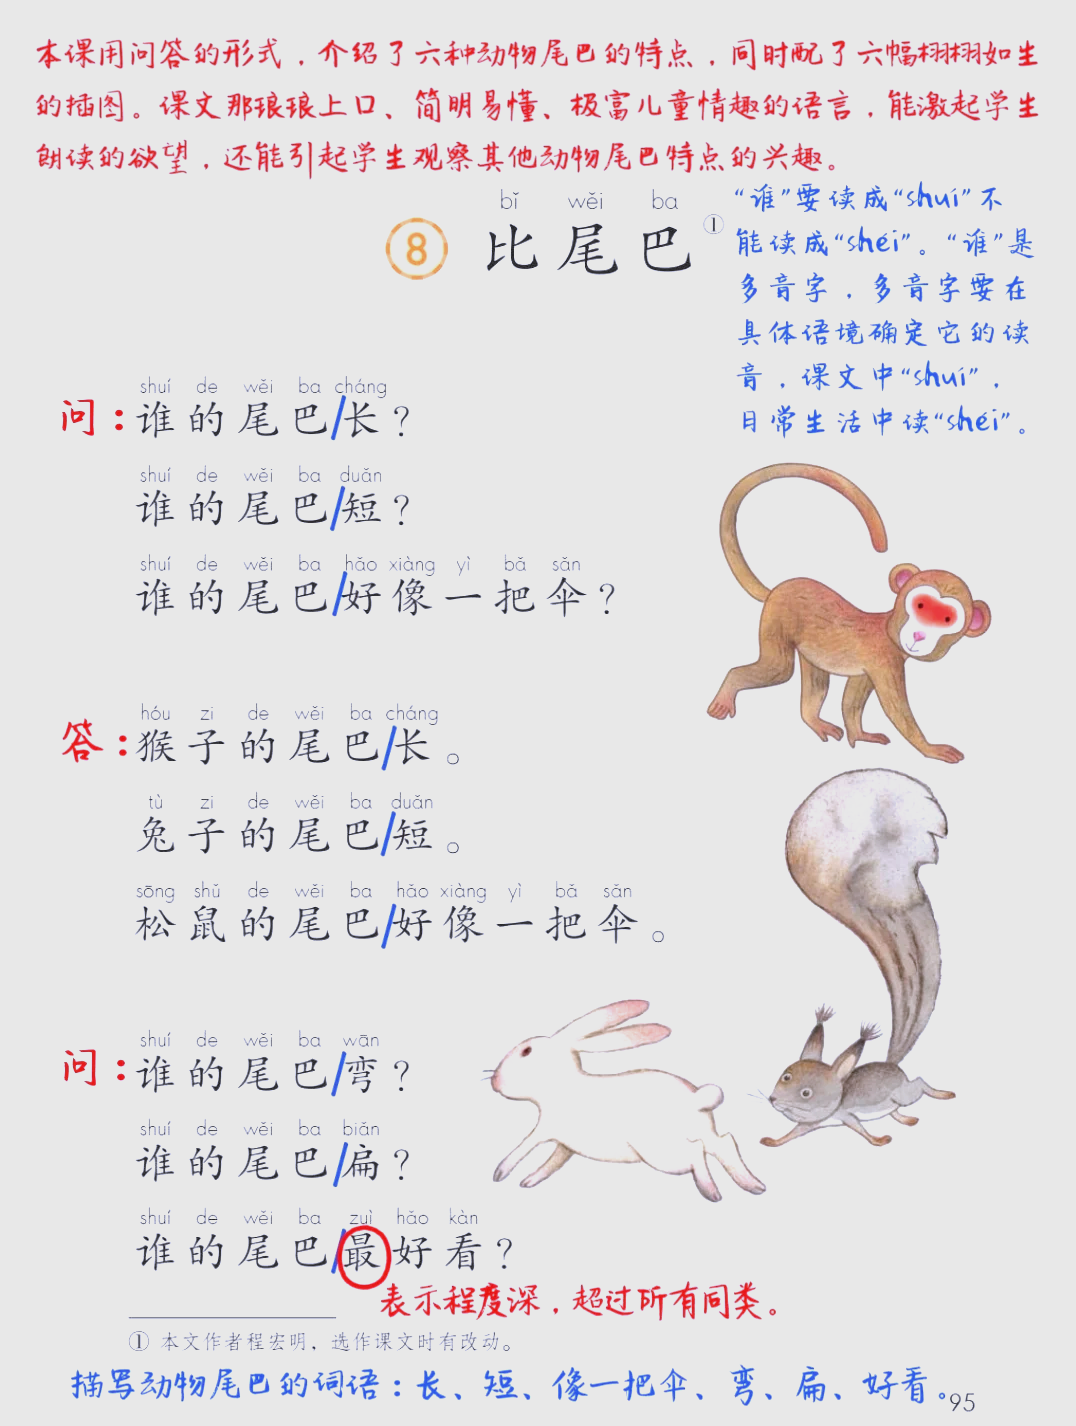 本课用问答的形式，介绍了六种动物尾巴的特点，同时配了六幅栩栩如生
的插图。课文那琅琅上口、简明易懂、极富儿童情趣的语言，能激起学生
朗读的欲望，还能引起学生观察其他动物尾巴特点的兴趣。
bǐ wěi ba
8 比尾巴①
“谁”要读成“shuí”不
能读成“shéi”。“谁”是
多音字，多音字要在
具体语境确定它的读
音，课文中“shuí”，
日常生活中读“shéi”。
shuí de wěi ba cháng
问：谁的尾巴/长？
shuí de wěi ba duǎn
谁的尾巴/短？
shuí de wěi ba hǎo xiàng yì bǎ sǎn
谁的尾巴/好像一把伞？
hóu zi de wěi ba cháng
答：猴子的尾巴/长。
tù zi de wěi ba duǎn
兔子的尾巴/短。
sōng shǔ de wěi ba hǎo xiàng yì bǎ sǎn
松鼠的尾巴/好像一把伞。
shuí de wěi ba wān
问：谁的尾巴/弯？
shuí de wěi ba biǎn
谁的尾巴/扁？
shuí de wěi ba zuì hǎo kàn
谁的尾巴/最好看？
表示程度深，超过所有同类。
① 本文作者程宏明，选作课文时有改动。
描写动物尾巴的词语：长、短、像一把伞、弯、扁、好看。
95